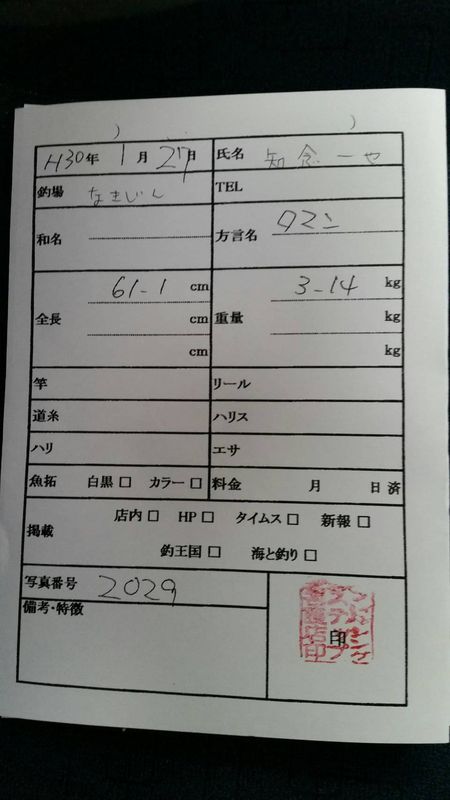 H30年 1月 27日 氏名 知念一也
釣場 なきじん TEL
和名 方言名 タマン
全長 61-1 cm 重量 3-14 kg
cm kg
cm kg
竿 リール
道糸 ハリス
ハリ エサ
魚拓 白黒 □ カラー □ 料金 月 日 済
掲載 店内 □ HP □ タイムス □ 新報 □
釣王国 □ 海と釣り □
写真番号 2029
備考・特徴 印